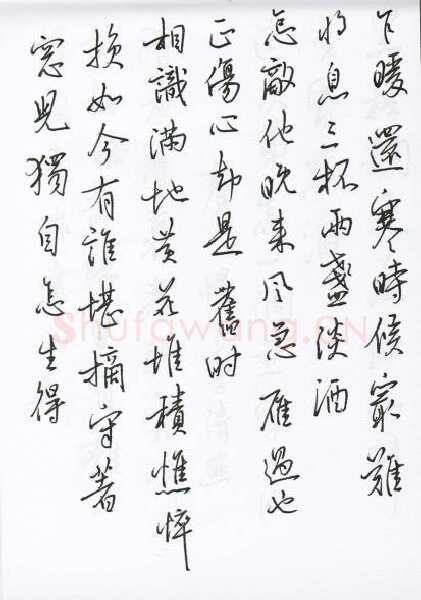 乍暖還寒時候最難
将息三杯兩盞淡酒
怎敵他晚来风急雁過也
正傷心却是舊时
相識滿地黄花堆積憔悴
损如今有誰堪摘守著
窓兒獨自怎生得
Shufawang.CN